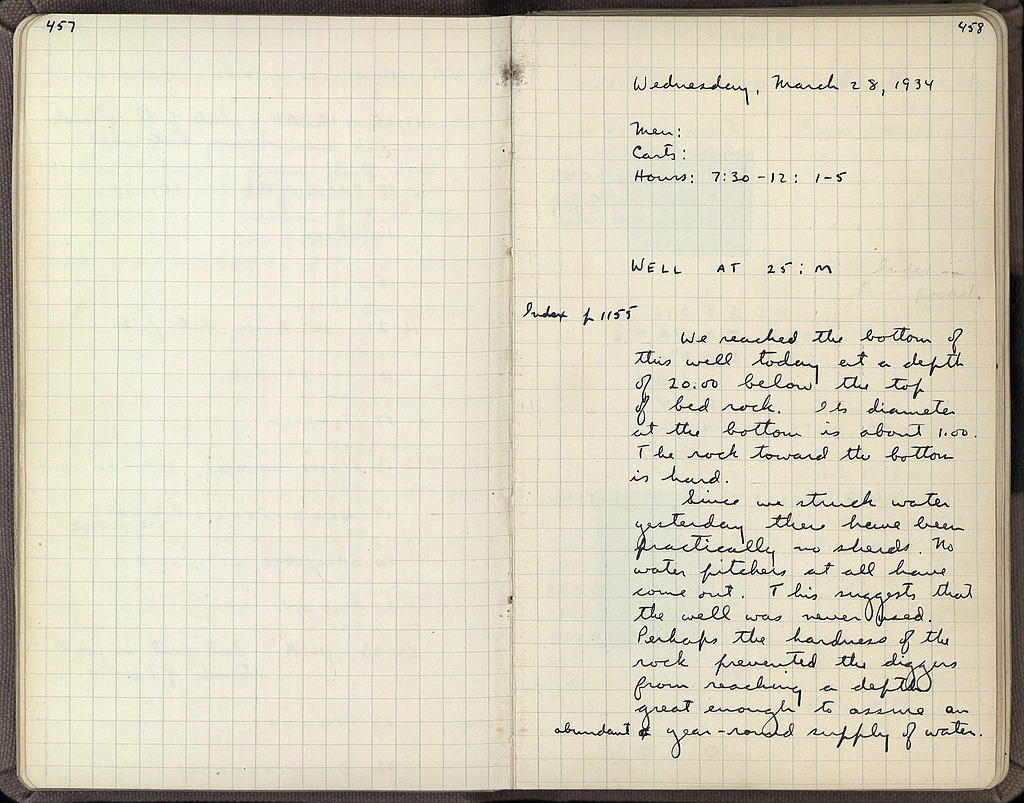 457
458
Wednesday, March 28, 1934
Men:
Carts:
Hours: 7:30-12: 1-5
WELL AT 25:M
Index p 1155
We reached the bottom of
this well today at a depth
of 20.00 below the top
of bed rock. Its diameter
at the bottom is about 1.00.
The rock toward the bottom
is hard.
Since we struck water
yesterday there have been
practically no sherds. No
water pitchers at all have
come out. This suggests that
the well was never used.
Perhaps the hardness of the
rock prevented the diggers
from reaching a depth
great enough to assure an
abundant & year-round supply of water.